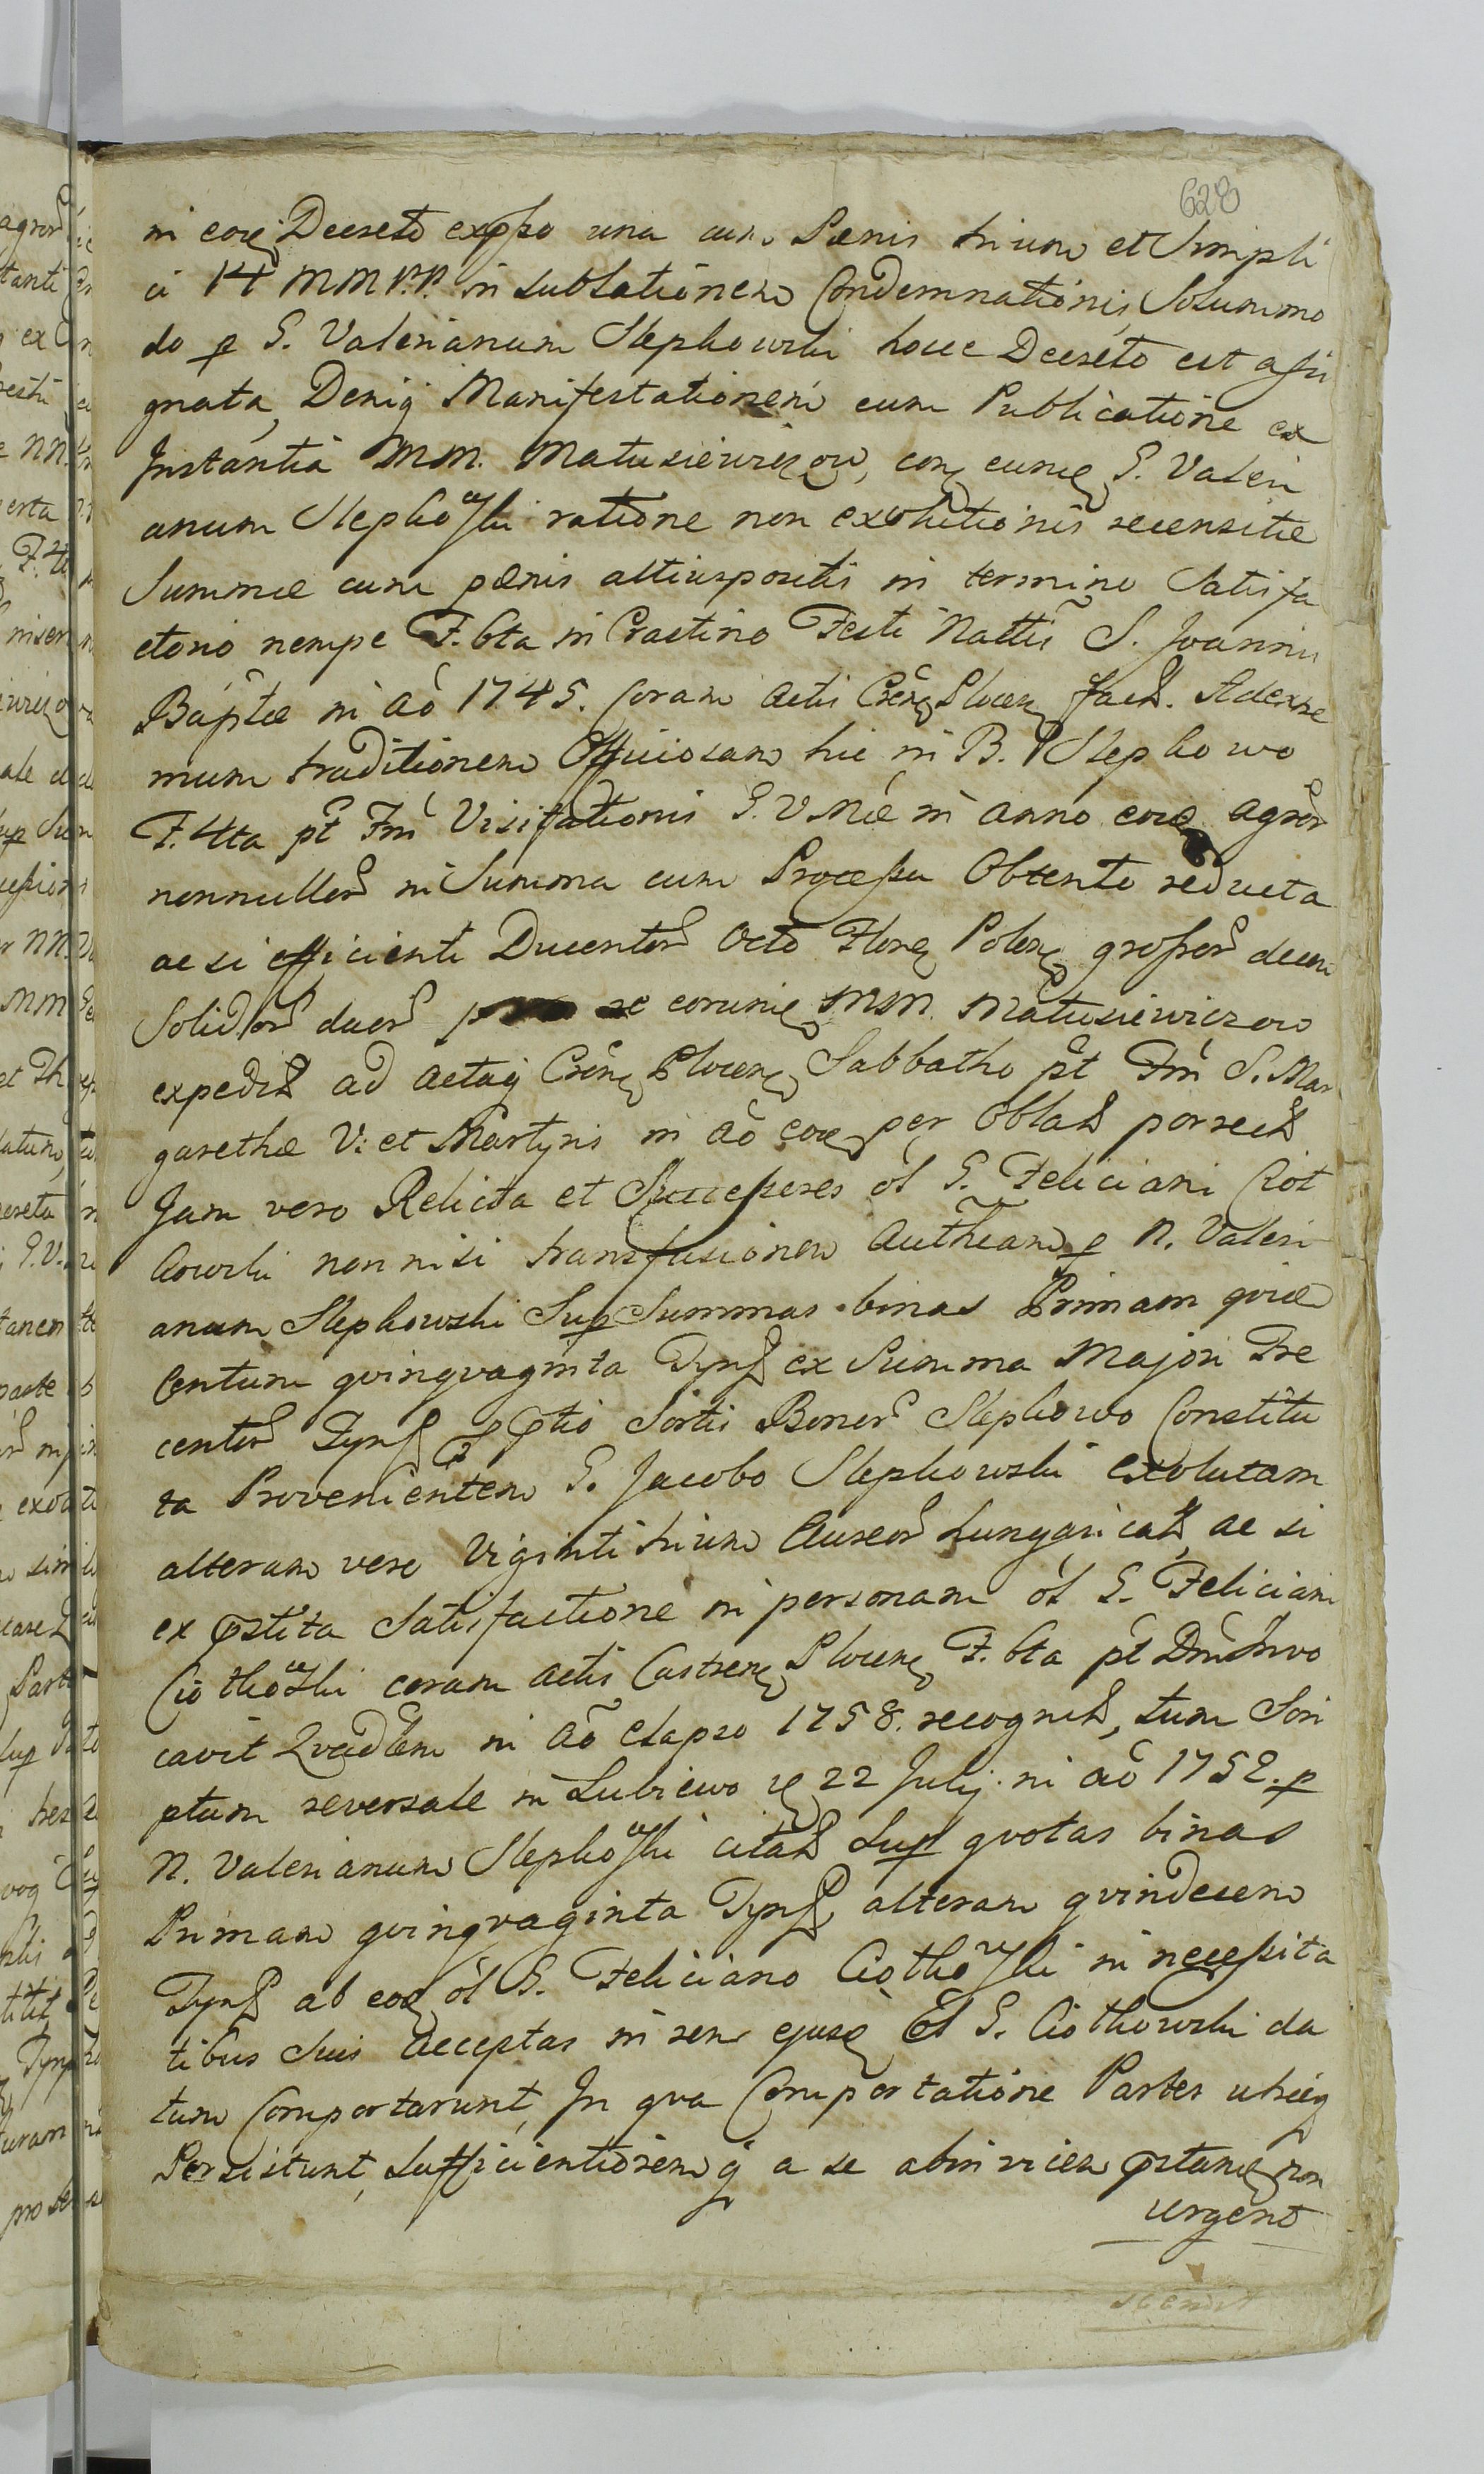 628
in eoq Decreto expso una cum Pœnis trium et Simpli
ci 14 MM P.P. in Sublationem Condemnationis, Solummo
do p G. Valerianum Slepkowski hocce Decreto est assi
gnata, Deniq Manifestationem cum Publicatione ex
Instantia MM. Matusiewiczow, con eund G. Valeri
anum Slepkowski ratione non exolutionis recensitæ
Summæ cum pœnis altiuspositis in termino Satisfa
ctorio nempe F. 6ta in Crastino Festi Nattis S. Joannis
Baptæ in aõ 1745. Coram Actis Cren Plocen fact. Ad exre
mum traditionem Officiosam hic in B. Slepkowo
F. 4ta pt Fm Visitationis B. V. Mæ in anno eod agror
nonnullor in Summa cum Processu Obtento reducta
ac si efficienti Ducentor Octo Flor Polon grossor decem
Solidor duor se eorund MM. Matusiewiczow
expedit ad Actaq Cren Plocen Sabbatho pt Fm S. Mar
garethæ V. et Martyris in aõ eod per Oblat porrect
Jam vero Relicta et Successores ol G. Feliciani Ciot
kowski non nisi transfusionem Autheam p N. Valeri
anum Slepkowski Sup Summas binas Primam qvid
Centum qvinqvaginta Tynf ex Summa Majori Tre
centor Tynf Sortis Bonor Slepkowo Constitu
ta Provenientem G. Jacobo Slepkowski exolutam
alteram vero Viginti trium Aureor hungaricat, ac si
ex pstita Satisfactione in personam ol G. Feliciani
Ciotkowski coram Actis Castren Plocen F. 6ta pt Dnm Invo
cavit Qvadlem in aõ elapso 1758. recognit, tum Scri
ptum reversale in Lubiewo d 22 Julij in aõ 1752. p
N. Valerianum Slepkowski citat Sup qvotas binas
Primam qvinqvaginta Tynf, alteram qvindecem
Tynf ab eod ol G. Feliciano Ciotkowski in necessita
tibus Suis Acceptas in rem ejusd Ol G. Ciotkowski da
tum Comportarunt, In qva Comportatione Partes utræq
Persistunt, Sufficientiorem q a se abinvicem pstand non
urgent